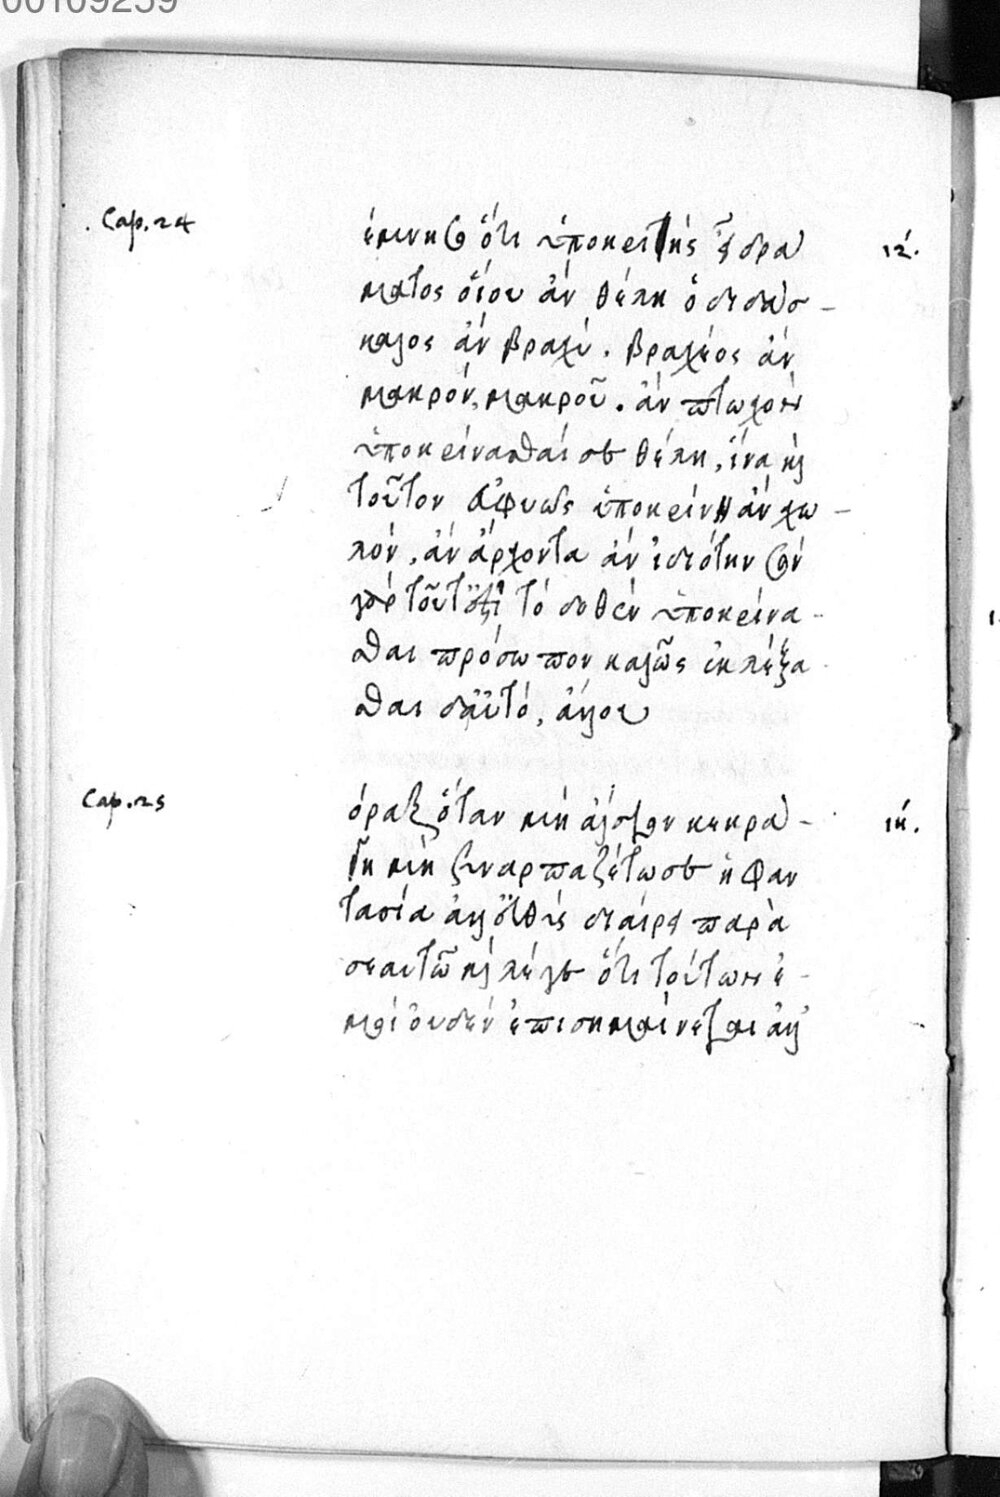 00109259
Cap. 24
έμνησο ὅτι ὑποκριτὴς εἶ δρα
ιζ΄.
ματος ὁΐου ἀν θέλη ὁ διδάσ-
καλος ἀν βραχύ. βραχέος ἀν
μακρόν, μακροῦ. ἀν πτωχὸν
ὑποκρίνασθαί σε θέλη, ἵνα καὶ
τοῦτον εὐφυῶς ὑποκρίνη ἀν χω-
λόν, ἀν ἄρχοντα ἀν ἰδιότην σὸν
γὰρ τοῦτ' ἔστι τό δοθὲν ὑποκρίνα-
σθαι πρόσωπον καλῶς ἐκλέξα
σθαι δ' αὐτό, ἄλλου
Cap. 25
όραξ ὅταν μὴ αἴσιον κεκρά-
ιή.
γη μὴ συναρπαζέτω σε ἡ φαν
τασία ἀλλ' εὐθὺς διαίρει παρὰ
σεαυτῶ καὶ λέγε ὅτι τούτων ἐ-
μοὶ ὀυδὲν ἐπισημαίνεται ἀλλ'